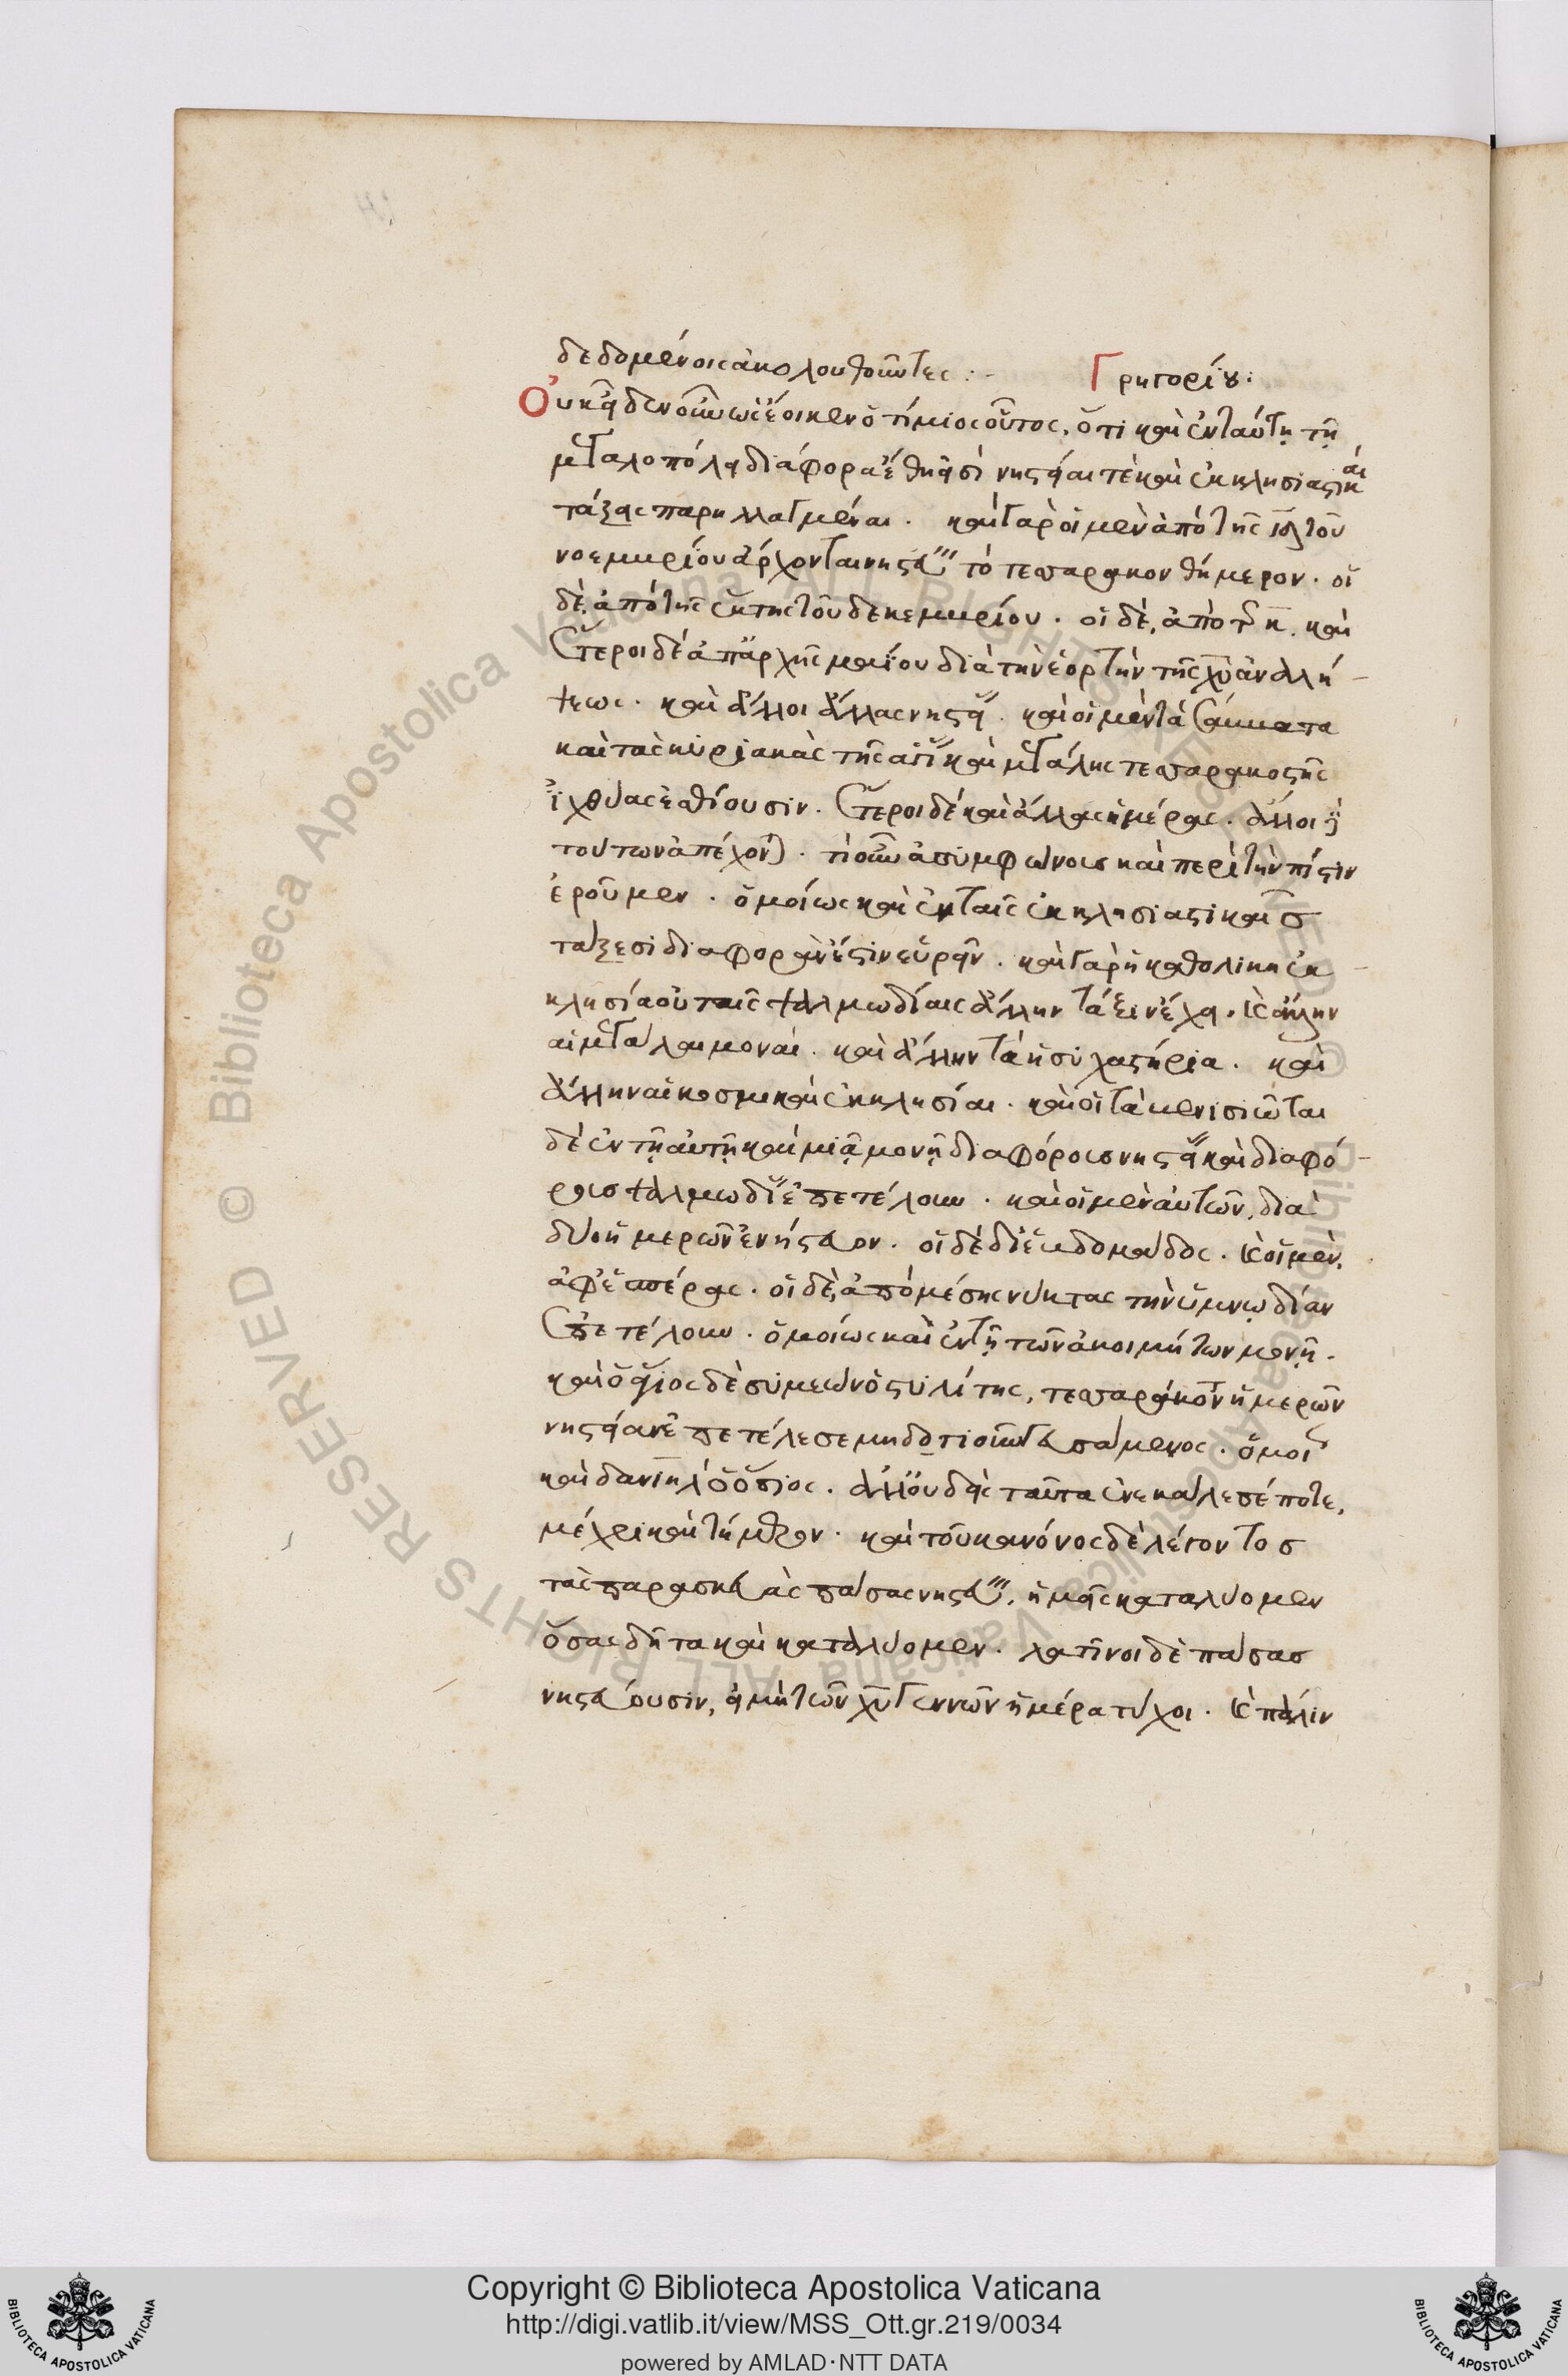 δεδομένοις ἀκολουθοῦντες :- Γρηγορίου:
Οὐκ εἰδὲν οὖν ὡς ἔοικεν ὁ τίμιος οὗτος, ὅτι καὶ ἐν ταύτῃ τῇ
μεγαλοπόλει διάφορα ἔθη εἰσὶ νηστεῖαι τὲ καὶ ἐκκλησιαστικαὶ
τάξεις παρηλλαγμέναι. καὶ γὰρ οἱ μὲν ἀπὸ τῆς ιδ τοῦ
νοεμβρίου ἄρχονται νηστεύειν τὸ τεσσαρακονθήμερον. οἱ
δὲ, ἀπὸ τῆς ἕκτης τοῦ δεκεμβρίου. οἱ δὲ, ἀπὸ τῆς κ. καὶ
ἕτεροι δὲ ἀπ' ἀρχῆς μαΐου διὰ τὴν ἑορτὴν τῆς χυ ἀναλή-
ψεως. καὶ ἄλλοι ἄλλας νηστείας. καὶ οἱ μὲν τὰ σάββατα
καὶ τὰς κυριακὰς τῆς ἁγίας καὶ μεγάλης τεσσαρακοστῆς
ἰχθύας ἐσθίουσιν. ἕτεροι δὲ καὶ ἄλλας ἡμέρας. ἄλλοι δὲ
τούτων ἀπέχονται. τί οὖν ἀσυμφώνους καὶ περὶ τὴν πίστιν
ἐροῦμεν. ὁμοίως καὶ ἐν ταῖς ἐκκλησιαστικαῖς
τάξεσι διαφορὰν ἔστιν εὑρεῖν. καὶ γὰρ ἡ καθολικὴ ἐκ-
κλησία οὐ ταῖς ψαλμωδίαις ἄλλην τάξιν ἔχει. καὶ ἄλλην
αἱ μεγάλαι μοναί. καὶ ἄλλην τὰ ἡσυχαστήρια. καὶ
ἄλλην αἱ κοσμικαὶ ἐκκλησίαι. καὶ οἱ ταμενισιῶται
δὲ ἐν τῇ αὐτῇ καὶ μιᾷ μονῇ διαφόρους νηστείας καὶ διαφό-
ρους ψαλμωδίας ἐπετέλουν. καὶ οἱ μὲν αὐτῶν, διὰ
δύο ἡμερῶν ἐνήστευον. οἱ δὲ δι' ἑβδομάδος. καὶ οἱ μὲν,
ἀφ' ἑσπέρας. οἱ δὲ, ἀπὸ μέσης νύκτας τὴν ὑμνῳδίαν
ἐπετέλουν. ὁμοίως καὶ ἐν τῇ τῶν ἀκοιμήτων μονῇ.
καὶ ὁ ἅγιος δὲ συμεὼν ὁ στυλίτης, τεσσαράκοντα ἡμερῶν
νηστείαν ἐπετέλεσε μηδότι οὖν γευσάμενος. ὁμοίως
καὶ δανιὴλ ὁ ὅσιος. ἀλλ' οὐδεὶς ταῦτα ἐνεκάλεσέ ποτε,
μέχρι καὶ τήμερον. καὶ τοῦ κανόνος δὲ λέγοντος
τὰς παρασκευὰς πάσας νηστεύειν, ἡμεῖς καταλύομεν
ὅσας δῆτα καὶ καταλύομεν. λατῖνοι δὲ πάσας
νηστεύουσιν, εἰ μὴ τῶν χυ γεννῶν ἡμέρα τύχοι. καὶ πάλιν
Copyright © Biblioteca Apostolica Vaticana
http://digi.vatlib.it/view/MSS_Ott.gr.219/0034
powered by AMLAD·NTT DATA